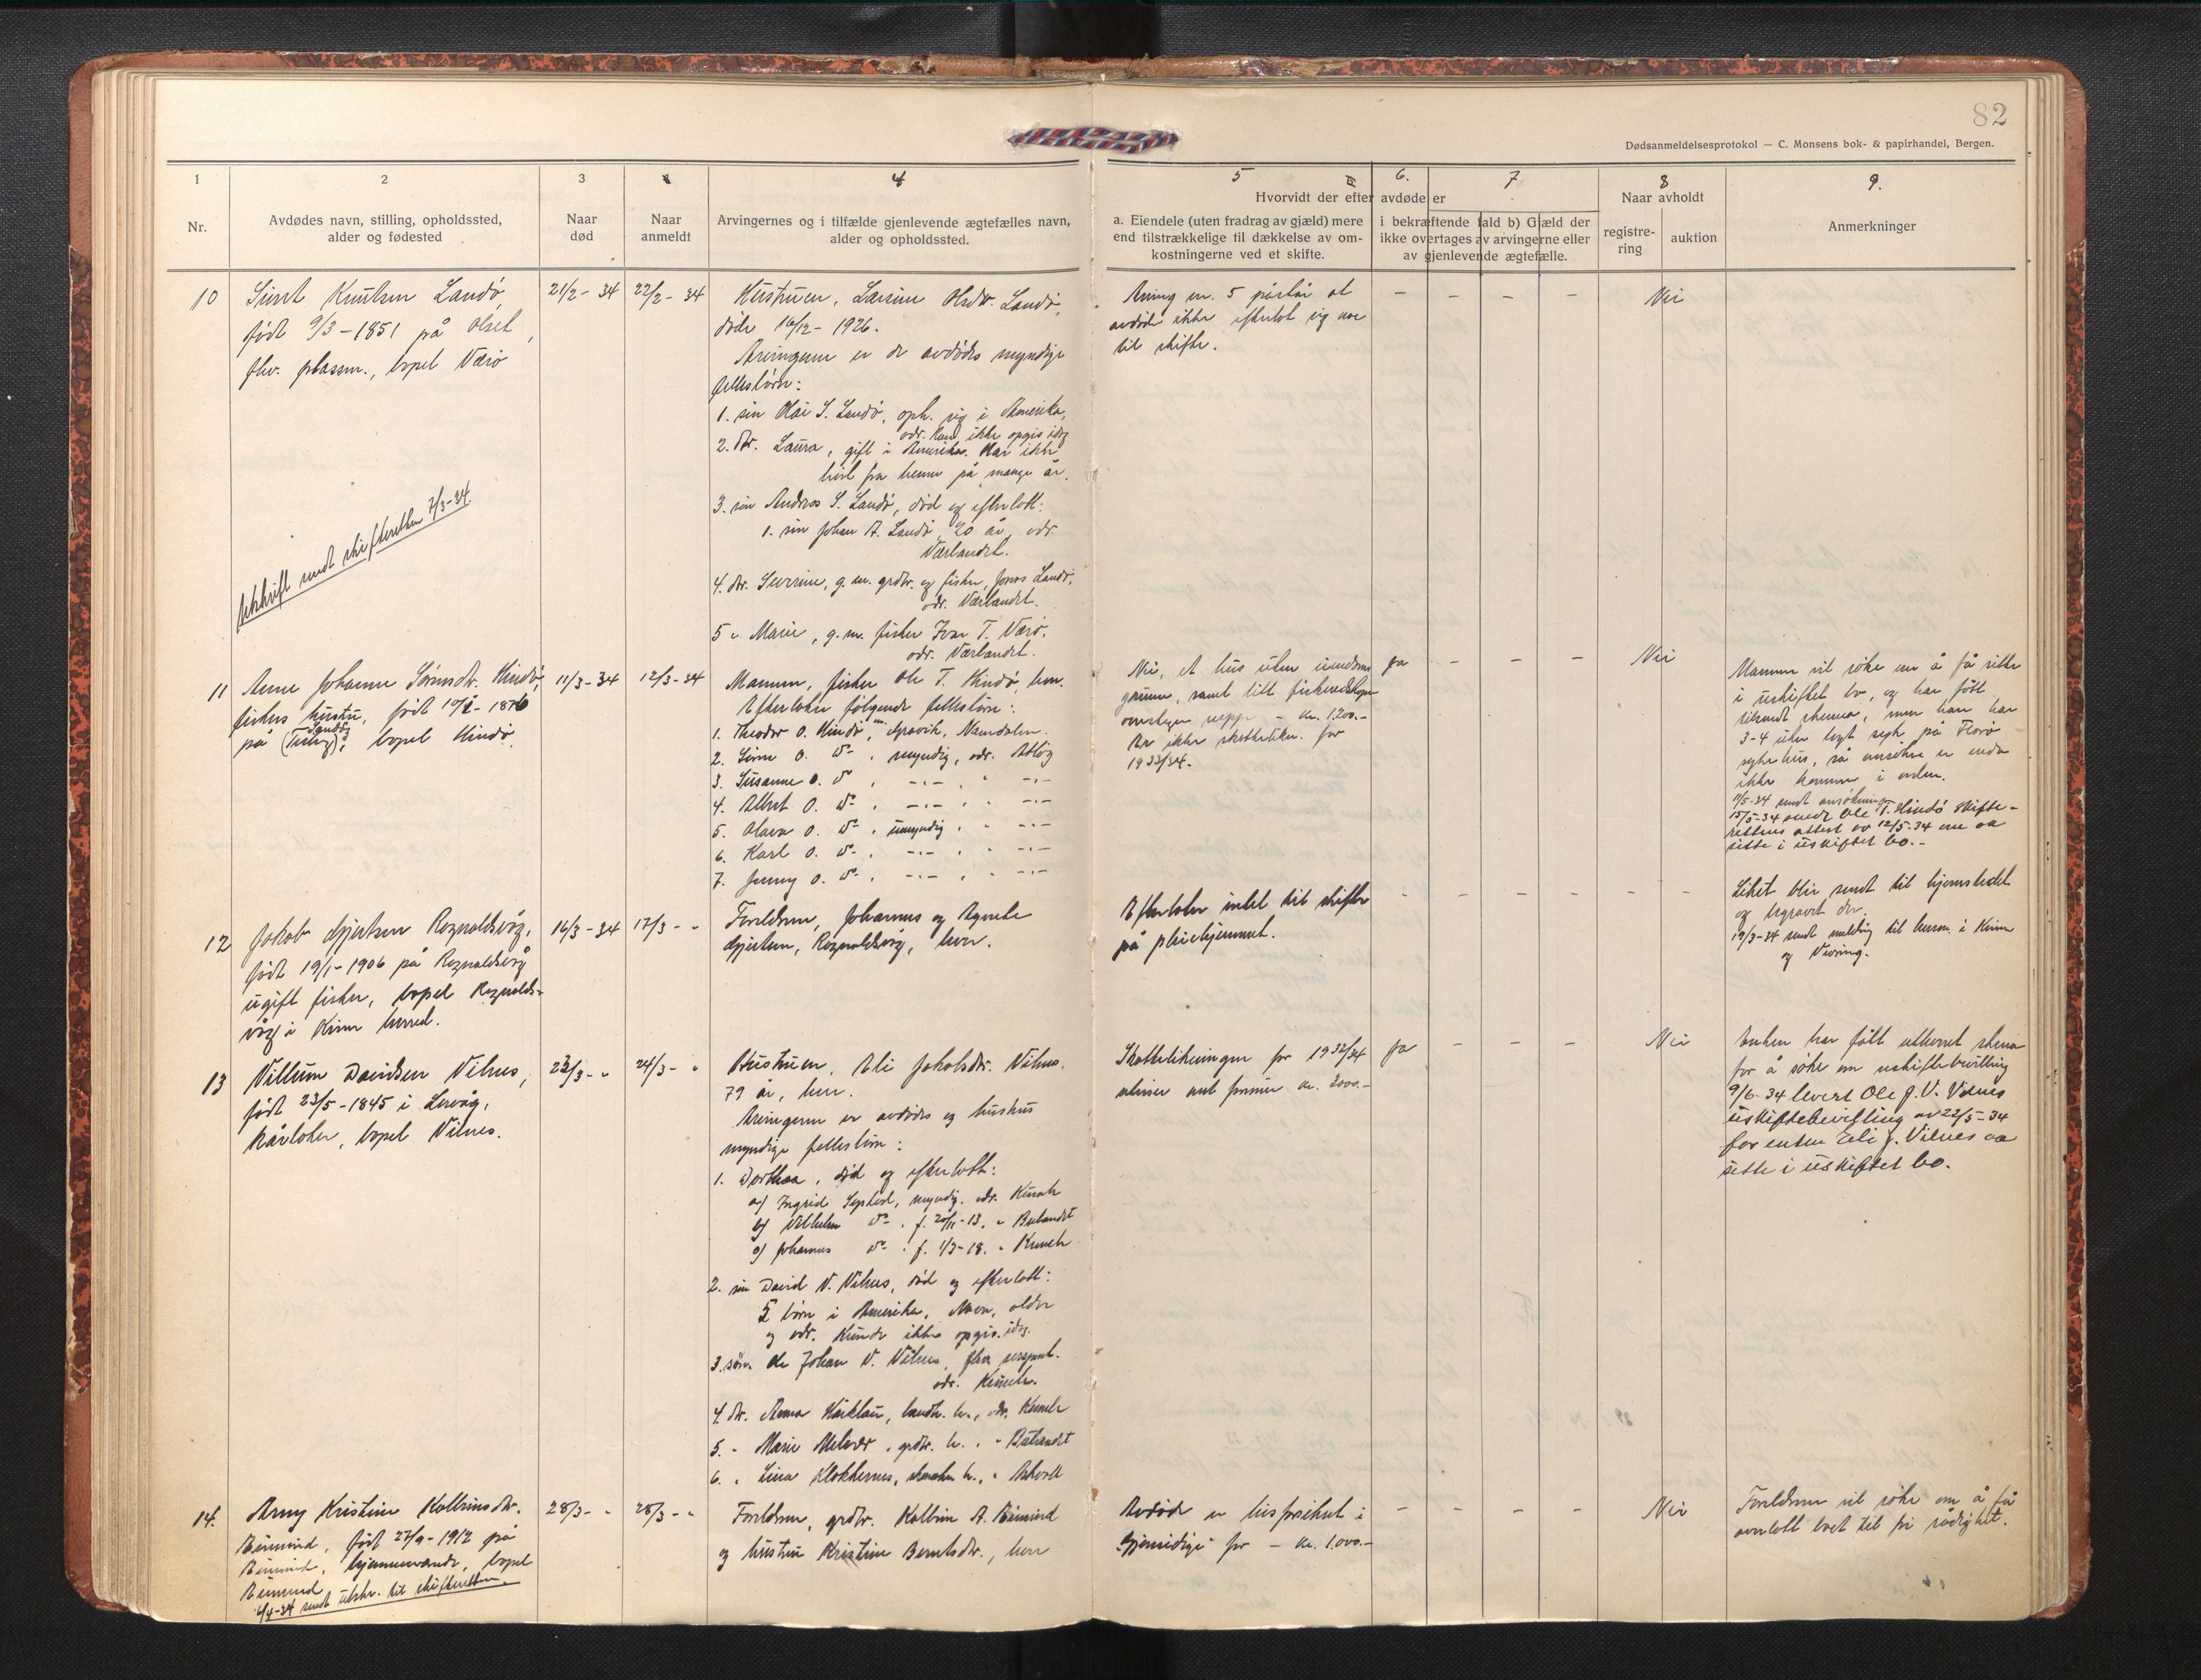 82
Dødsanmeldelsesprotokol — C. Monsens bok- & papirhandel, Bergen.
1
2
3
4
5
6.
7
8
9.
Nr.
Avdødes navn, stilling, opholdssted,
alder og fødested
Naar
død
Naar
anmeldt
Arvingernes og i tilfælde gjenlevende ægtefælles navn,
alder og opholdssted.
Hvorvidt der efter avdøde er
a. Eiendele (uten fradrag av gjæld) mere
end tilstrækkelige til dækkelse av om-
kostningerne ved et skifte.
i bekræftende fald b) Gjæld der
ikke overtages av arvingerne eller
av gjenlevende ægtefælle.
Naar avholdt
registre-
ring
auktion
Anmerkninger
10
Knutsen Landø,
født 9/3-1851 på
fhv. plassm., bopel Værø
Utskrift sendt skifteretten 7/3-34.
21/2-34
22/2-34
Hustruen, Olsdtr. Landø,
døde 16/12-1926.
Arvingene er de avdødes myndige
fellesbørn:
1. søn Olai S. Landø, oph. sig i Amerika,
adr. kan ikke opgis idag
2. dtr. Laura, gift i Amerika. Har ikke
hørt fra henne på mange år.
3. søn Andreas S. Landø, død og efterlatt:
1. søn Johan A. Landø, 20 år, adr.
Værlandet.
4. dtr. Severine, g.m. grdbr. og fisker, Jonas Landø,
adr. Værlandet.
5 " Marie, g.m. fisker Ivar T. Værø.
adr. Værlandet.
Arving nr. 5 påstår at
avdøde ikke efterlot sig noe
til skifte.
— — — —
Nei
11
Anne Johanne Sørensdtr. Hindø,
fiskers hustru, født
på bopel Hindø.
11/3-34
12/3-34
Mannen, fisker Ole T. Hindø, her.
Efterlater følgende fellesbørn:
1. Theodor O. Hindø, m., Namdalen.
2. Sørn O. do, myndig, adr. Atløy
3. Susanne O. do, —.—, " —.—
4. Albert O. do, —.—, " —.—
5. Olava O. do, umyndig, " —.—
6. Karl O. do, —.—, " —.—
7. Jenny O. do, —.—, " —.—
Nei, et hus uten eiendoms
grunn, samt litt fiskeredskaper
omtr. kr. 1200.-
Er ikke skatteliknet for
1933/34.
ja
— — —
Nei
Mannen vil søke om å få sitte
i uskiftet bo, og har fått
tilsendt skema, men han har
3-4 uker lagt syk på Florø
sykehus, så ansøkn. er enda
ikke kommet i orden.
11/5-34 sendt ansøkningen
15/5-34 sendt Ole T. Hindø skifte-
rettens attest av 12/5-34 om aa
sitte i uskiftet bo.-
12
Jakob Gjertsen Rognaldsvåg,
født 19/1-1906 på Rognaldsvåg
ugift fisker, bopel Rognalds-
våg i Kinn herred.
16/3-34
17/3- "
Foreldrene, Johannes og Agnete
Gjertsen, Rognaldsvåg, lever.
Efterlater intet til skifte
på pleiehjemmet.
— — — — — —
Liket blir sendt til hjemstedet
og begravet der.
19/3-34 sendt melding til lensm. i Kinn
og Vevring.
13
Villum Davidsen Vilnes,
født 23/5-1845 i Lervåg,
kårloher, bopel Vilnes.
23/3- "
24/3- "
Hustruen, Eli Jakobsdtr. Vilnes.
79 år, her.
Arvingene er avdødes og hustrus
myndige fellesbørn:
1. Dorthea, død og efterlatt:
a) Ingrid myndig, adr.
b) Vilhelm do, f. 20/11-13, " Bulandet
c) Johannes do, f. 1/3-18. "
2. søn David V. Vilnes, død og efterlatt:
5 børn i Amerika. Navn, alder
og adr. kunde ikke opgis idag.
3. søn. Ole Johan V. Vilnes, fhv.
adr.
4. dtr. Anna landh. h., adr.
5. " Marie Melvær, grdbr. h., " Bulandet
6. " Lina h., " Askvoll
Skattelikningen for 1933/34
utviser ant. formue kr. 2000.-
ja
— — —
Nei
Enken har fått utlevert skema
for å søke om uskiftebevilling
9/6-34 levert Ole J. V. Vilnes
uskiftebevilling av 23/5-34
for enken Eli J. Vilnes aa
sitte i uskiftet bo.
14.
Arny Kristine Kolbeinsdtr.
født 27/9-1912 på
hjemmeværende, bopel
4/4-34 sendt utskr. til skifteretten.
28/3- "
28/3- "
Foreldrene, grdbr. Kolbein A.
og hustru Kristine Berntsdtr., her
Avdøde er livsforsikret i
Gjensidige for - kr. 1.000.-
— — — —
Nei
Foreldrene vil søke om å få
overlatt boet til fri rådighet.